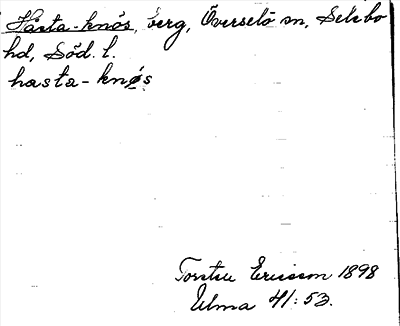 Håsta-knös, berg, Överselö sn, Selebo
hd, Söd. l.
hasta-knøs
Torsten Ericsson 1898
Ulma 41:53.